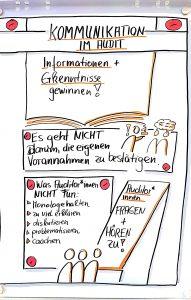 KOMMUNIKATION
IM AUDIT
Informationen +
Erkenntnisse
gewinnen!
Es geht NICHT
darum, die eigenen
Vorannahmen zu bestätigen.
Was Auditor*innen
NICHT tun:
Monologe halten
zu viel erklären
diskutieren
problematisieren
coachen
Auditor*
innen
FRAGEN
+
HÖREN
ZU!